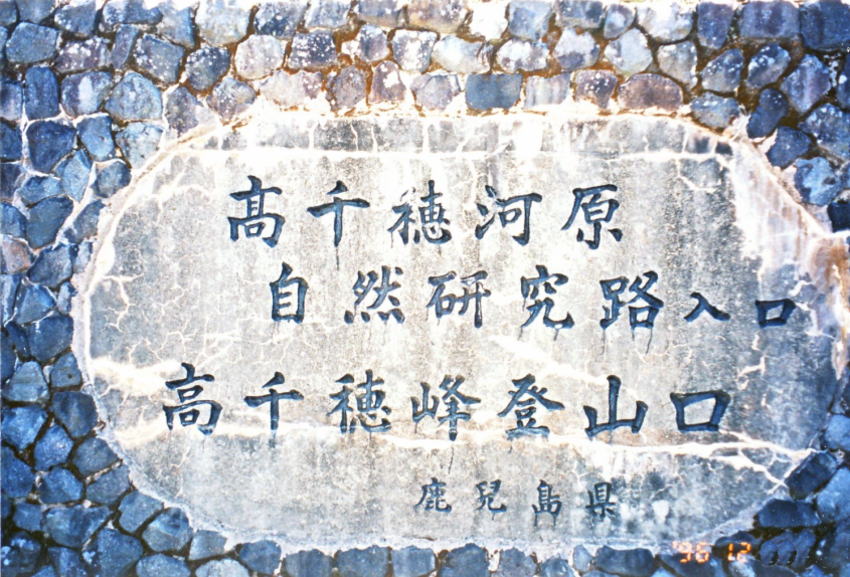 髙千穗河原
自然研究路入口
高千穗峰登山口
鹿兒島県
'96 12